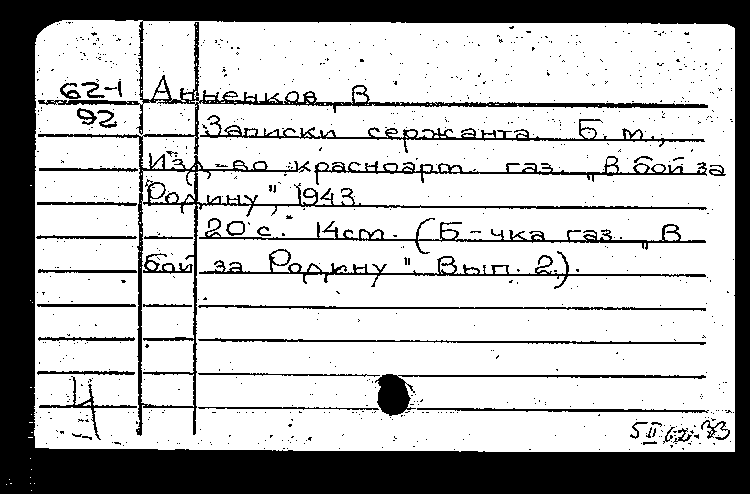 62-1 Анненков, В
92 Записки сержанта. Б. м.,
Изд-во красноарм. газ. „В бой за
Родину", 1943.
20 с. 14см. (Б-чка газ. „В
бой за Родину". Вып. 2).
4
5 II 62-33